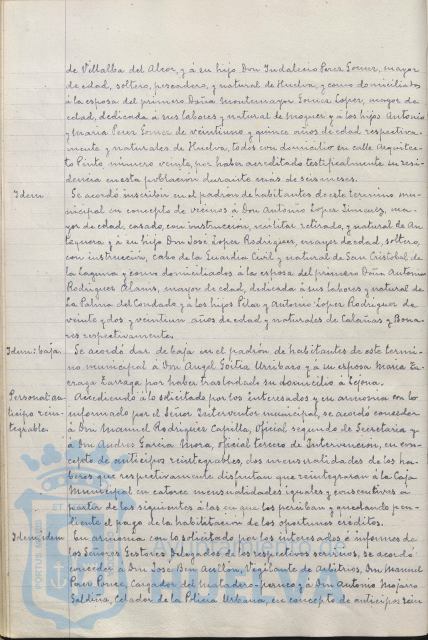 de Villalba del Alcor, y á su hijo Don Indalecio Perez Gomez, mayor
de edad, soltero, pescadero, y natural de Huelva, y como domiciliados
á la esposa del primero Doña Montemayor Gomez Lopez, mayor de
edad, dedicada a sus labores y natural de Moguer y á los hijos Antonio
y Maria Perez Gomez de veintiuno y quince años de edad respectiva-
mente y naturales de Huelva, todos con domicilio en calle Arquitec-
to Pinto número veinte, por haber acreditado testificalmente su resi-
dencia en esta población durante más de seis meses.
Idem. Se acordó inscribir en el padrón de habitantes de este termino mu-
nicipal en concepto de vecinos á Don Antonio Lopez Jimenez, ma-
yor de edad, casado, con instrucción, militar retirado, y natural de An-
tequera y á su hijo Don José Lopez Rodriguez, mayor de edad, soltero,
con instrucción, cabo de la Guardia Civil y natural de San Cristobal de
la Laguna y como domiciliados á la esposa del primero Doña Antonia
Rodriguez Alanis, mayor de edad, dedicada á sus labores y natural de
La Palma del Condado y á los hijos Pilar y Antonio Lopez Rodriguez de
veinte y dos y veintiun años de edad y naturales de Calañas y Bona-
res respectivamente.
Idem: baja. Se acordó dar de baja en el padrón de habitantes de este térmi-
no municipal á Don Angel Goitia Urribaro y á su esposa Maria La-
rraga Larraga por haber trasladado su domicilio á Lejona.
Personal: an- Accediendo á lo solicitado por los interesados y en armonia con lo
ticipo rein- informado por el Señor Interventor municipal, se acordó conceder
tegrable. á Don Manuel Rodriguez Capilla, oficial segundo de Secretaria y
á Don Andres Garcia Mora, oficial tercero de Intervención, en con-
cepto de anticipos reintegrables, dos mensualidades de los ha-
beres que respectivamente disfrutan que reintegrarán á la Caja
Municipal en catorce mensualidades iguales y consecutivas á
partir de las siguientes á las en que los perciban y quedando pen-
diente el pago de la habilitación de los oportunos créditos.
Idem; idem. En armonia con lo solicitado por los interesados é informes de
los Señores Gestores Delegados de los respectivos servicios, se acordó
conceder á Don José Ben Avillón, Vigilante de Arbitrios, Don Manuel
Ponce, Cargador del Matadero y á Don Antonio Mojarro
Saldiña, Celador de la Policia Urbana, en concepto de anticipos rein